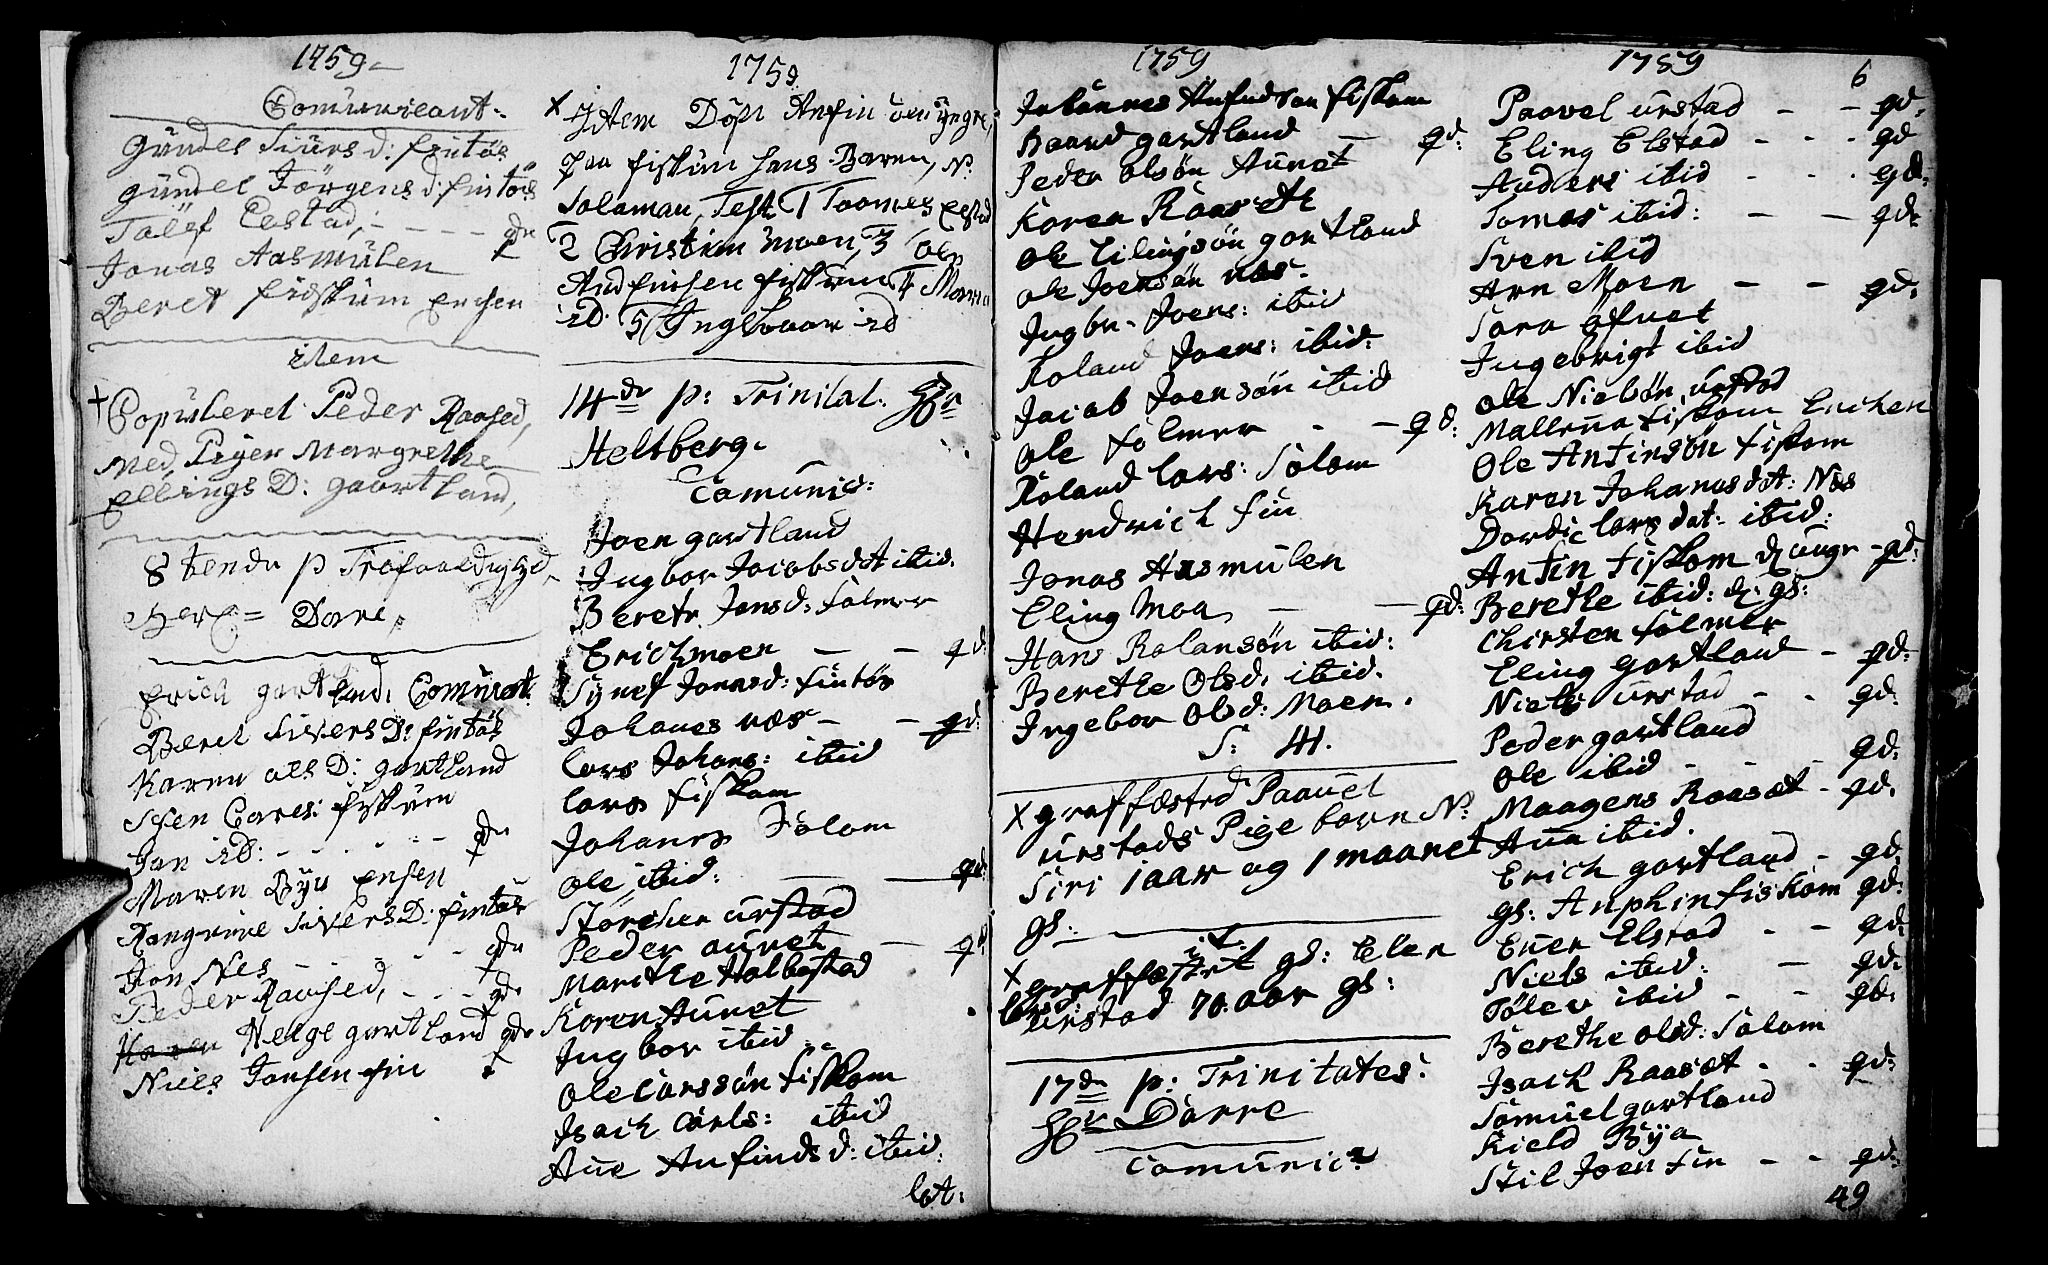 1759
Comunicant.
Gündel Siürs d: fintøs
gündel Jörgens d: fintøs
Tolëf Elstad, - - - - gde
Jonas Aasmülen
Beret fidsküm Enchen
item
+ Copuleret Peder Raased,
Med Piger Margrethe
Ellings D: gaartland,
8tende p Trefoldighed
Her Dare,
Erich gartland, Comunict
Beret Sivers D: fintøs
Karen ols D: gartland
Sven Carls: fisküm
Jan id: - - - - - gde
Maren Bÿn Ensen
Rangnine Sivers D: fintøs
Jon Nes - - - - - gde
Peder Raased, - - - gde
Helge gartland gde
Niels Jonsen fin
1759
x Item Döpt Anfin den ÿngre,
paa fisküm hans Barn, N.
Solaman, Test 1 Toomes Elstad
2 Christian moen, 3 Ole
Andfinsen fisküm 4 Maren
id. 5 Ingebaar id
14de p: Trinitat. Hr
Heltberg.
Comünic:
Joen gartland
Ingbor Jacobsdt ibid.
Berete Jonsd: folmer
Erich moen - - gd:
Synef Jonnsd: fintøs
Johanes næs - - gd:
lars Johans: ibid
lars fiskom
Johanes Solom
Ole ibid: - - gd:
Störcker urstad
Peder aunet - gd
Marithe Halbostad
Koren Aunet
Ingbor ibid
Ole Carssøn fiskom
Isach Carls: ibid
Ane Anfindsd: ibid:
lat:
1759
Johannes Anfindson fiskom
Baard gartland - gd:
Peder olsøn Aunet
Koren Raaseth
Ole Elingsøn gartland
Ole Joensøn næs.
Ingbr. Joens: ibid
Roland Joens: ibid:
Jacob Joensøn ibid
Ole folmer - - gd:
Roland lars: Solom
Hendrich fin
Jonas Aasmülen
Eling Moa - - gd:
Hans Rolansøn ibid:
Berethe Olsd: ibid.
Ingebor Olsd: Moen.
S: 41.
x graffæsted Paauel
urstads Pige barn N:
Siri 1 aar og 1 maanet
gs:
it:
x graffæstet gd: Elen
urstad 70. aar gs:
17de p: Trinitates:
Hr Darre
Comünic:
1759
6
Paavel urstad - - gd.
Eling Elstad - - - gd
Anders ibid - - - gd.
Tomas ibid: - - gd:
Sven ibid
Arn Moen - - gd:
Sara ofnet
Ingebrigt ibid
Ole Nielsøn urstad
Mallena fiskom Enchen
Ole Antinsøn fiskom
Karen Johanasdat: Næs
Dordi larsdat: ibid:
Antin fiskom d ungr - gd:
Berethe ibid: d: gs:
Chirsten folmer
Eling gartland - gd:
Niels urstad - - gd:
Peder gartland
Ole ibid - - - gd:
Maagens Raasæt - gd.
Ana ibid.
Erich gartland - gd.
gs: Anphin fiskom gd:
Ener Elstad - - gd:
Niels ibid: - gd:
Tølev ibid - - gd:
Berethe olsd: Solom
Isach Raasæt - - gd:
Samuel gartland
Kield Bÿa
Stil Joen fin - - gd:
49